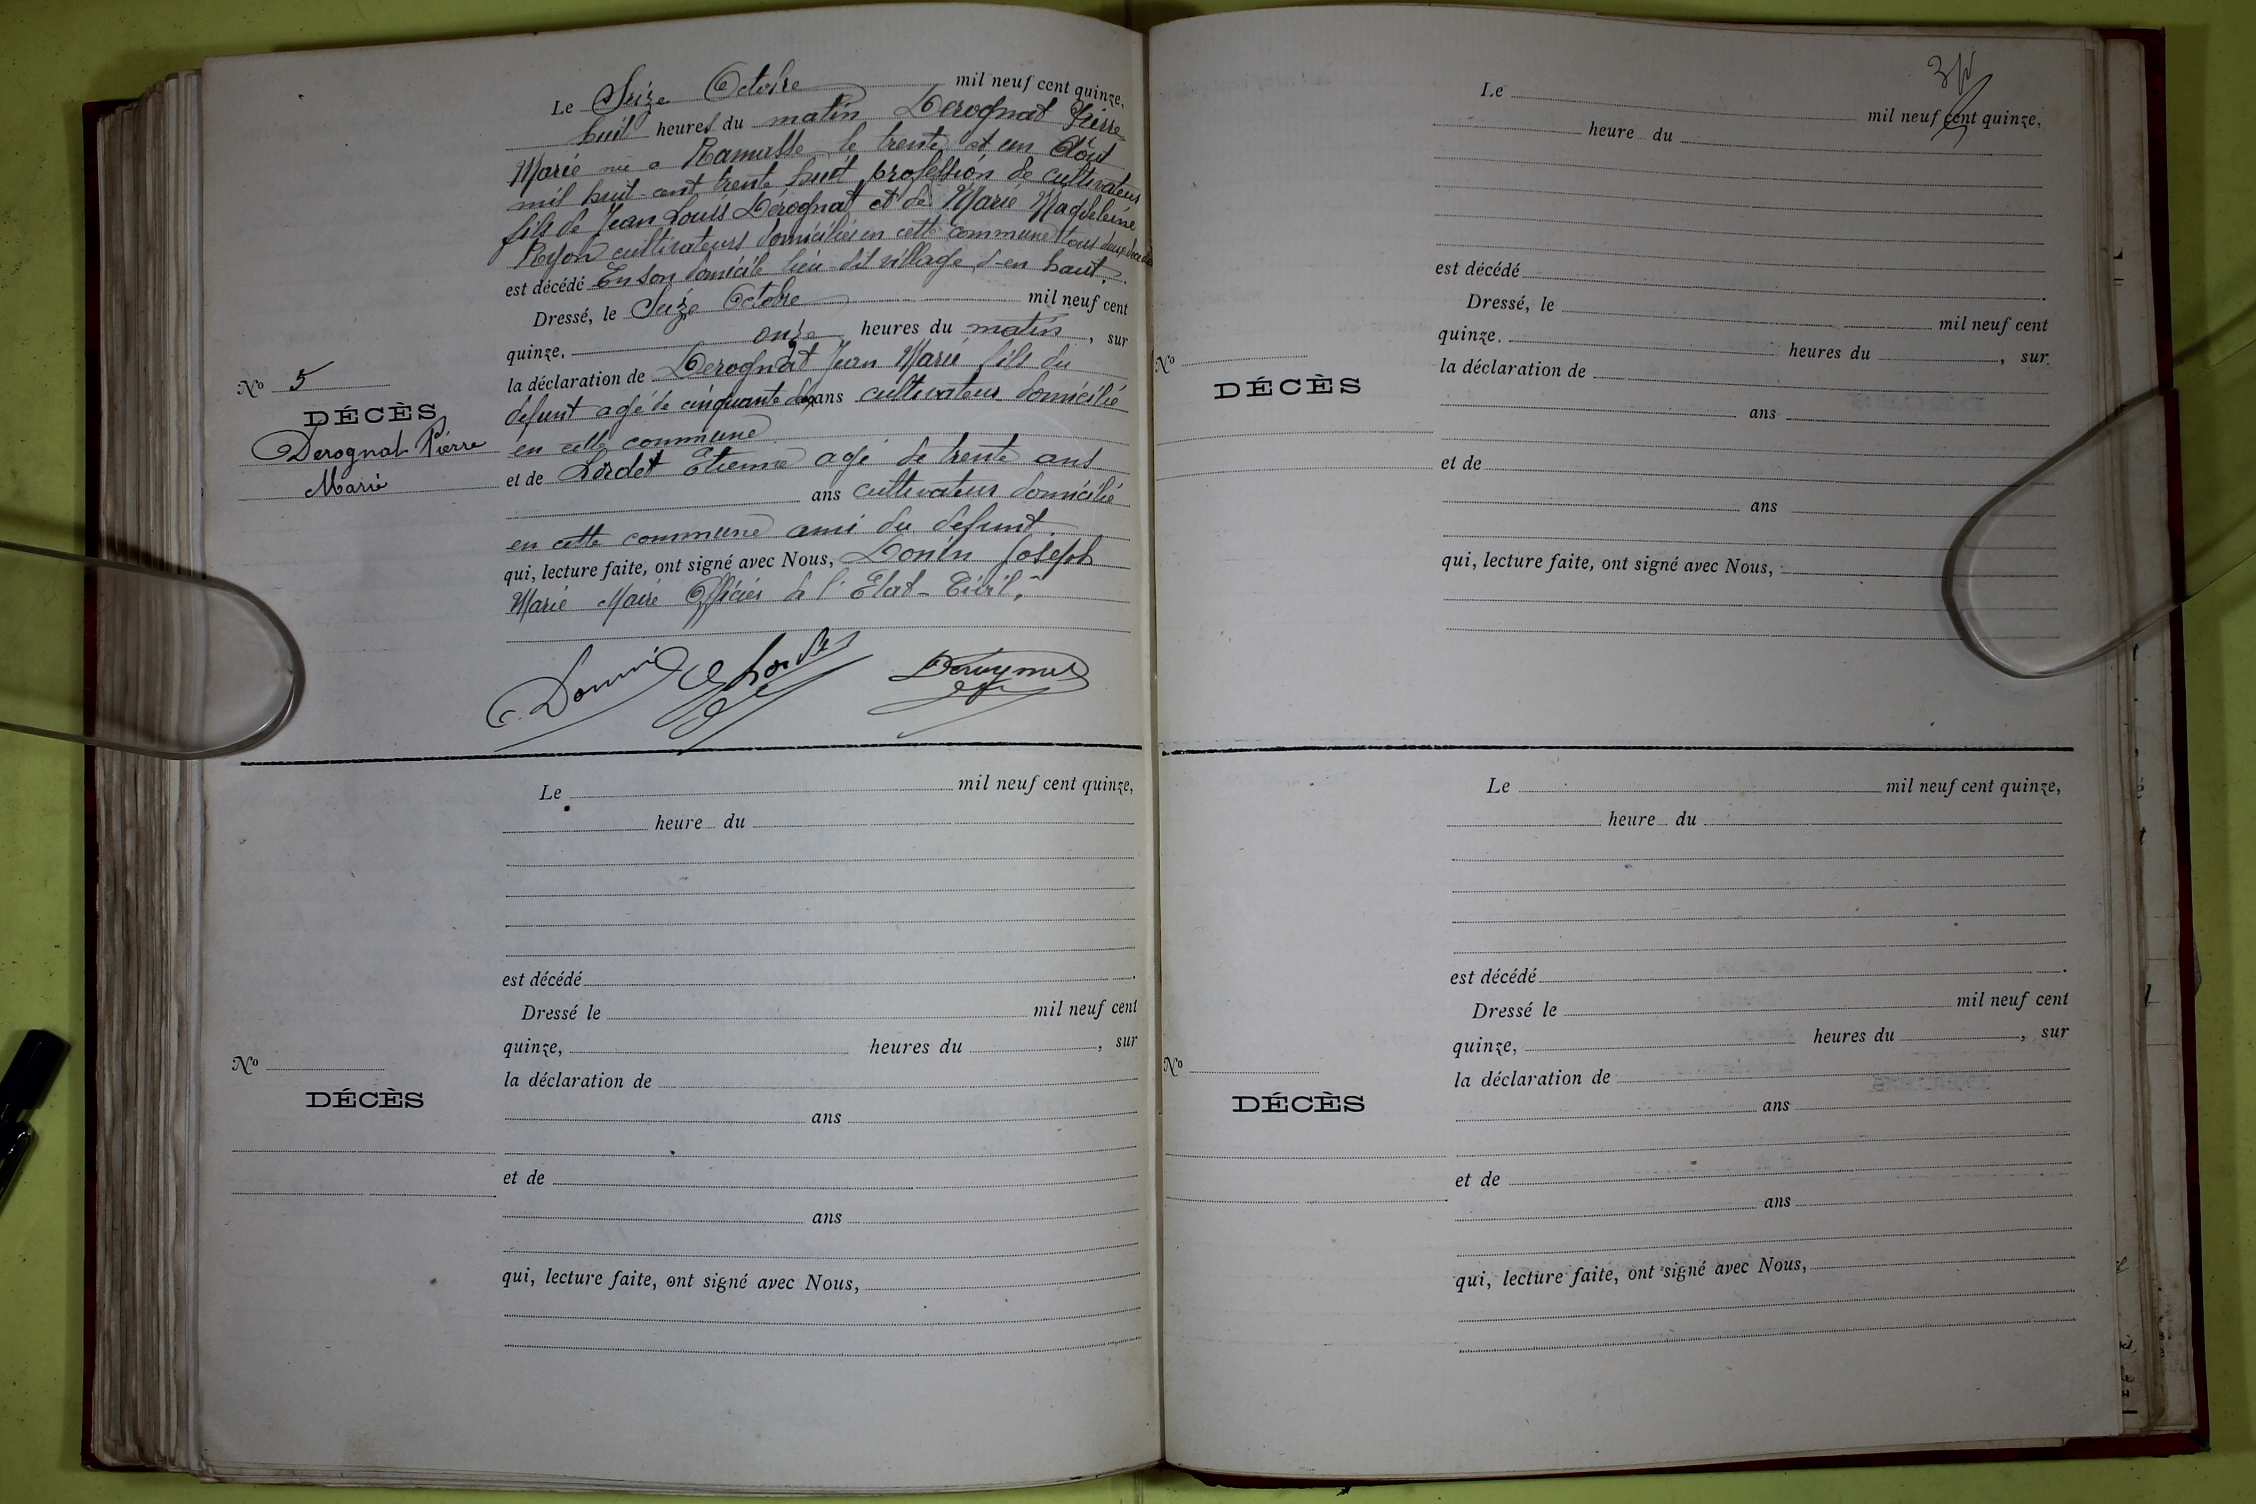 Le Seize Octobre mil neuf cent quinze,
huit heures du matin Derognat Pierre
Marie né a Ramasse le trente et un Août
mil huit cent trente huit profession de cultivateur
fils de Jean Louis Derognat et de Marie Magdeleine
Royon cultivateurs domiciliés en cette commune tous deux décédés
est décédé En son domicile lieu dit village d'en haut.
Dressé, le Seize Octobre mil neuf cent
quinze, onze heures du matin, sur
la déclaration de Derognat Jean Marie fils du
défunt agé de cinquante ans cultivateur domicilié
en cette commune
et de Lordet Etienne agé de trente ans
ans cultivateur domicilié
en cette commune ami du défunt
qui, lecture faite, ont signé avec Nous, Donin Joseph
Marie Maire Officier de l'Etat-Civil.
Nº 5
DÉCÈS
Derognat Pierre
Marie
Le mil neuf cent quinze,
heure du
est décédé
Dressé le mil neuf cent
quinze, heures du , sur
la déclaration de
ans
et de
ans
qui, lecture faite, ont signé avec Nous,
Nº
DÉCÈS
Le mil neuf cent quinze,
heure du
est décédé
Dressé, le mil neuf cent
quinze. heures du , sur
la déclaration de
ans
et de
ans
qui, lecture faite, ont signé avec Nous,
Nº
DÉCÈS
Le mil neuf cent quinze,
heure du
est décédé
Dressé le mil neuf cent
quinze, heures du , sur
la déclaration de
ans
et de
ans
qui, lecture faite, ont signé avec Nous,
Nº
DÉCÈS